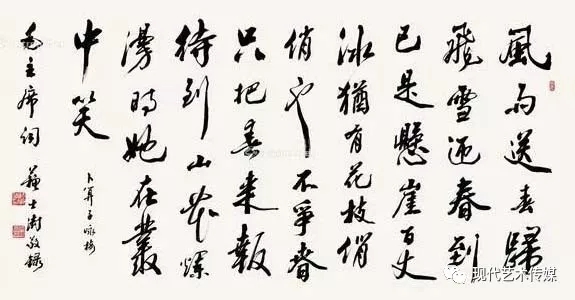 風雨送春歸
飛雪迎春到
已是懸崖百丈
冰猶有花枝俏
俏也不爭春
只把春來報
待到山花爛
漫時她在叢
中笑
卜算子咏梅
毛主席词 蘇士澍敬録
现代艺术传媒